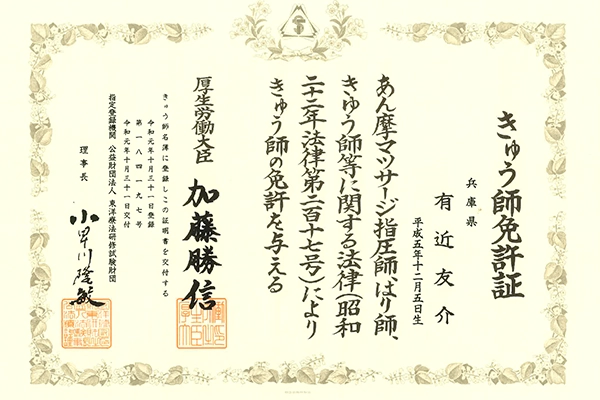 きゅう師免許証
兵庫県
有近友介
平成五年十二月五日生
あん摩マツサージ指圧師、はり師、
きゅう師等に関する法律(昭和
二十二年法律第二百十七号)により
きゅう師の免許を与える
厚生労働大臣 加藤勝信
きゅう師名簿に登録しこの証明書を交付する
令和元年十月三十一日登録
第一八四一九七号
令和元年十月三十一日交付
指定登録機関 公益財団法人 東洋療法研修試験財団
理事長 小早川隆敏